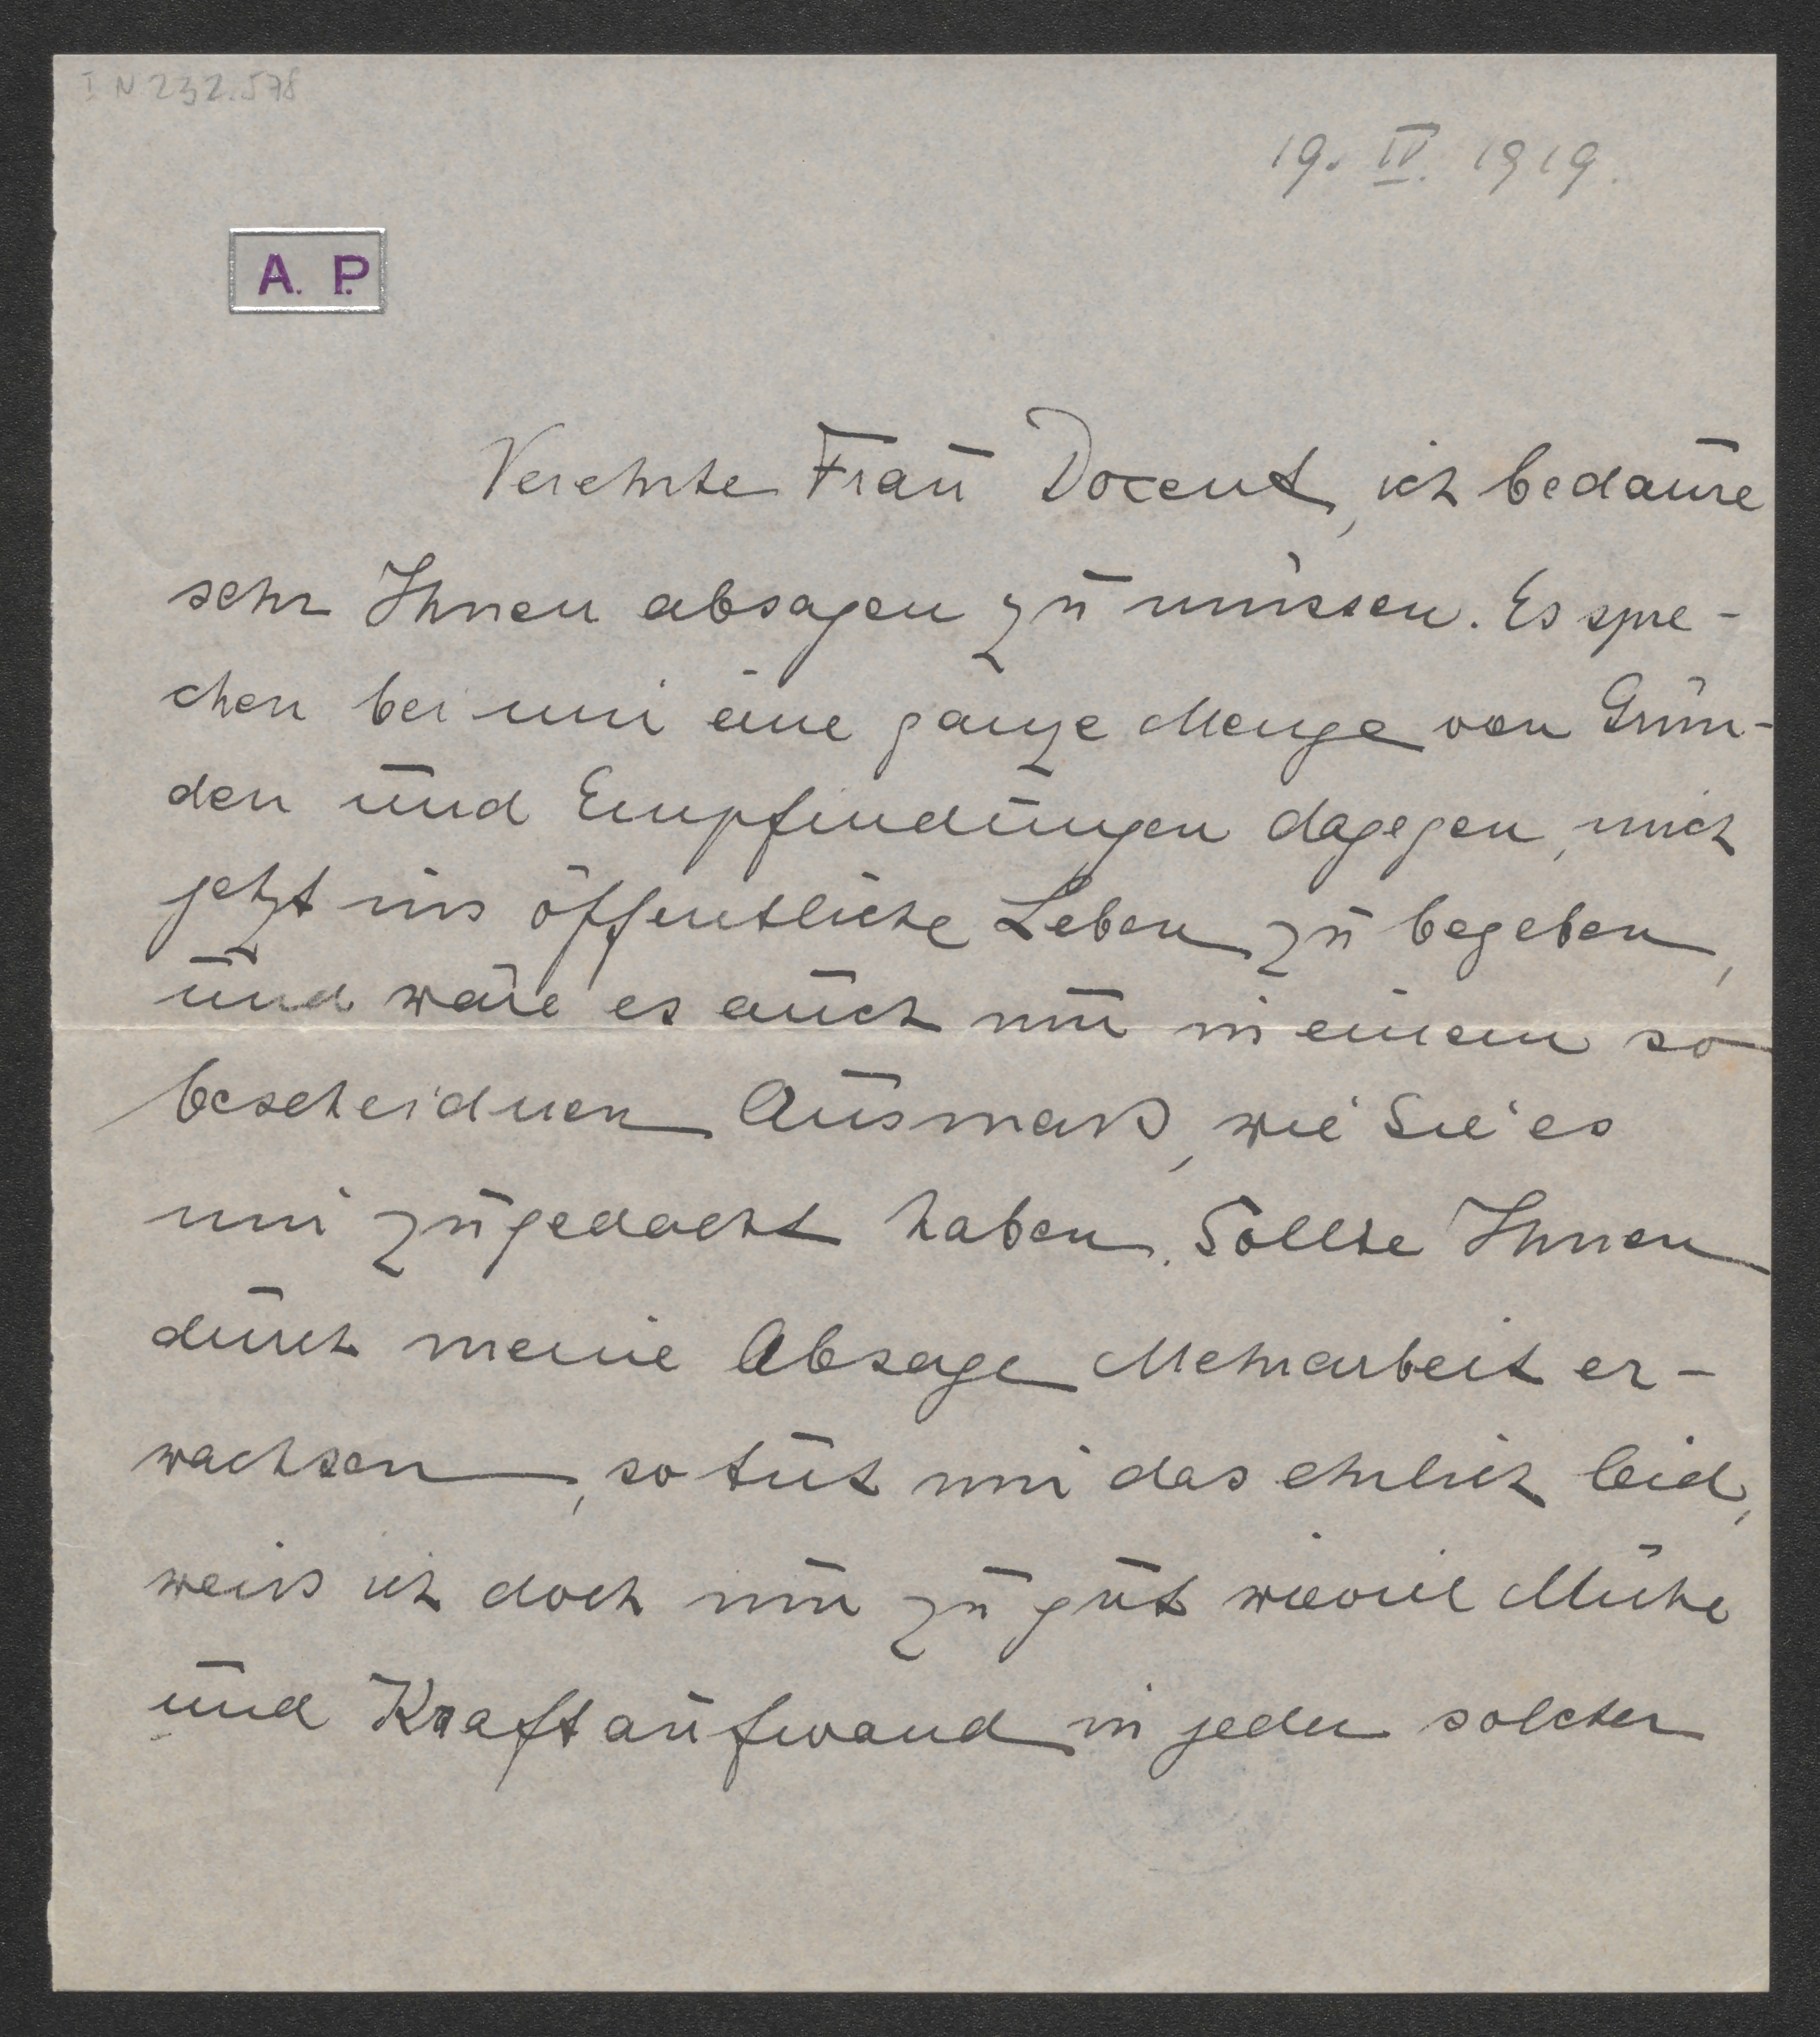 I N 232.578
19. IV. 1919.
A. P.
Verehrte Frau Docent, ich bedaure
sehr Ihnen absagen zu müssen. Es spre-
chen bei mir eine ganze Menge von Grün-
den und Empfindungen dagegen, mich
jetzt ins öffentliche Leben zu begeben,
und wäre es auch nur in einem so
bescheidnen Ausmaß, wie Sie es
mir zugedacht haben. Sollte Ihnen
durch meine Absage Mehrarbeit er-
wachsen, so tut mir das ehrlich leid,
weiss ich doch nur zu gut wieviel Mühe
und Kraftaufwand in jeder solcher